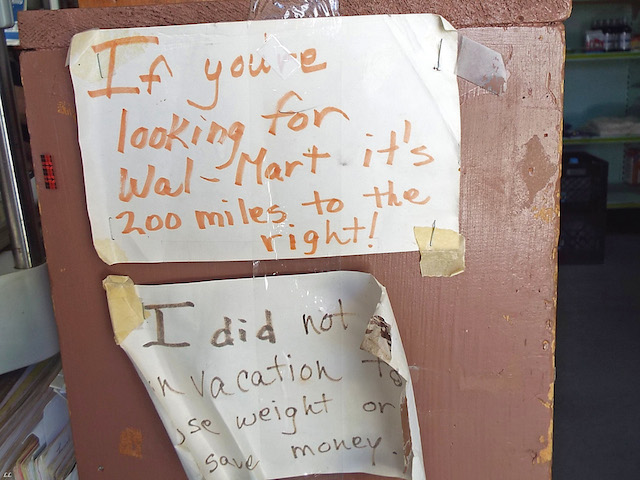 If you're
looking for
Wal-Mart it's
200 miles to the
right!
I did not
vacation to
weight or
save money.